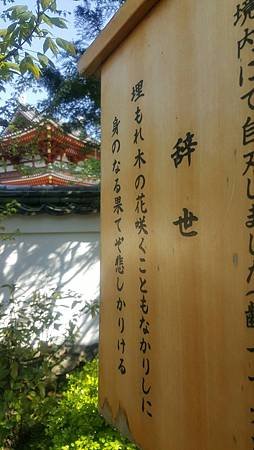 境内にて自刃しました(齢
辞世
埋もれ木の花咲くこともなかりしに
身のなる果てぞ悲しかりける